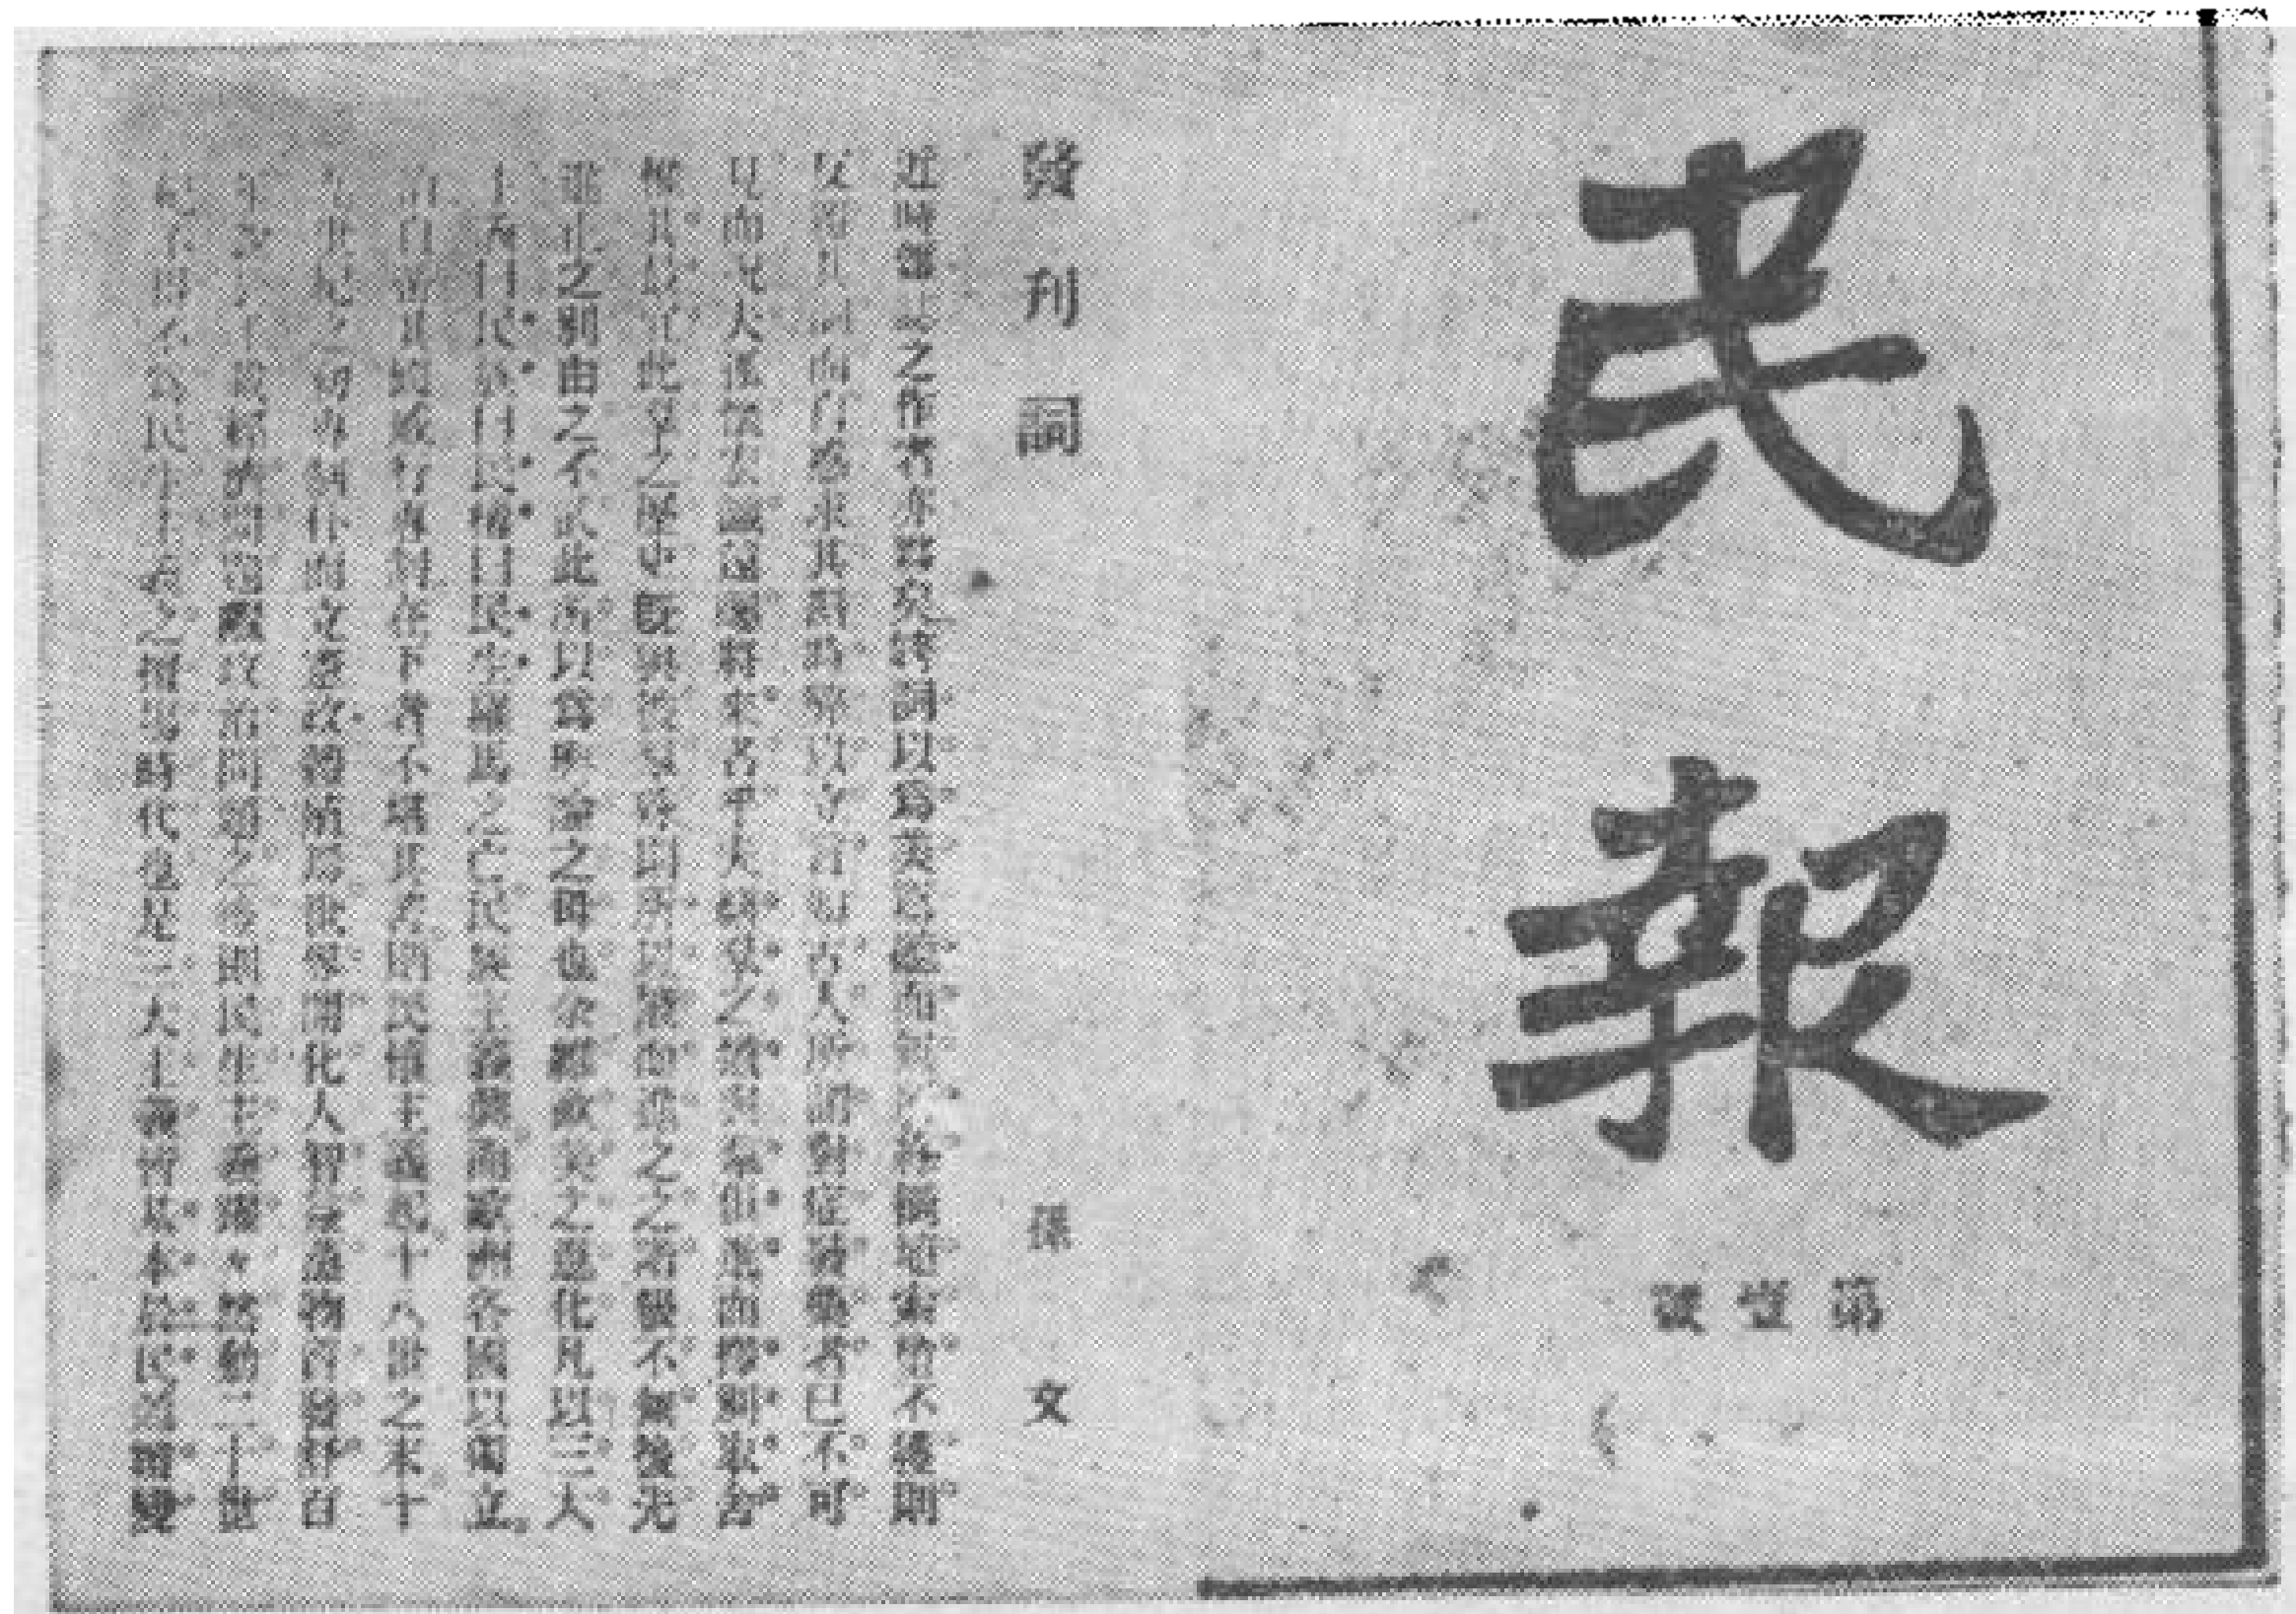 民報
第壹號
發刊詞
孫文
近時雜誌之作者亦夥矣姱詞以爲美囂聽而無所終摘埴索塗不獲則
反覆其詞而自惑求其斟時弊以立言如古人所謂對症發藥者已不可
見而況夫孤懷宏識遠矚將來者乎夫繕羣之道與羣俱進而擇別取舍
惟其最宜此羣之歷史既與彼羣殊則所以掖而進之之階級不無後先
進止之別由之不貳此所以爲輿論之母也余維歐美之進化凡以三大
主義曰民族曰民權曰民生羅馬之亡民族主義興而歐洲各國以獨立
洎自帝其國威行專制在下者不堪其苦則民權主義起十八世之末十
九世紀之初專制仆而立憲政體殖焉世界開化人智益蒸物質發舒百
年銳於千載經濟問題繼政治問題之後則民生主義躍々然動二十世
紀不得不爲民生主義之擅場時代也是三大主義皆基本於民遞嬗變